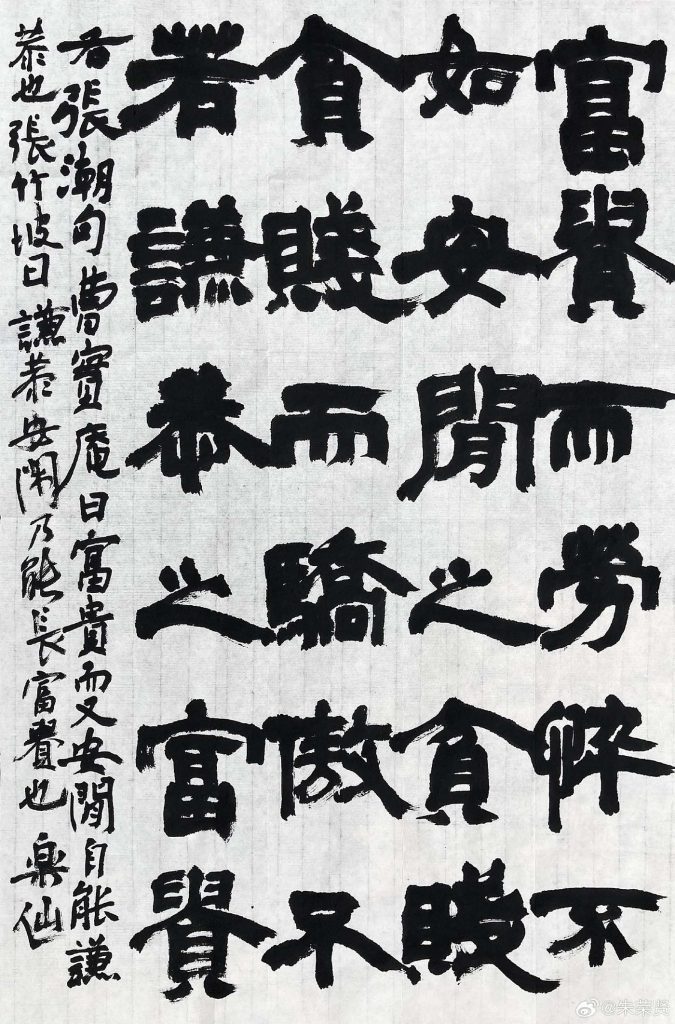 富貴而勞悴不
如安閒之貧賤
貧賤而驕傲不
若謙恭之富貴
右張潮句曹實庵曰富貴而又安閒自能謙
恭也張竹坡曰謙恭安閒乃能長富貴也 樂仙
@朱荣贤